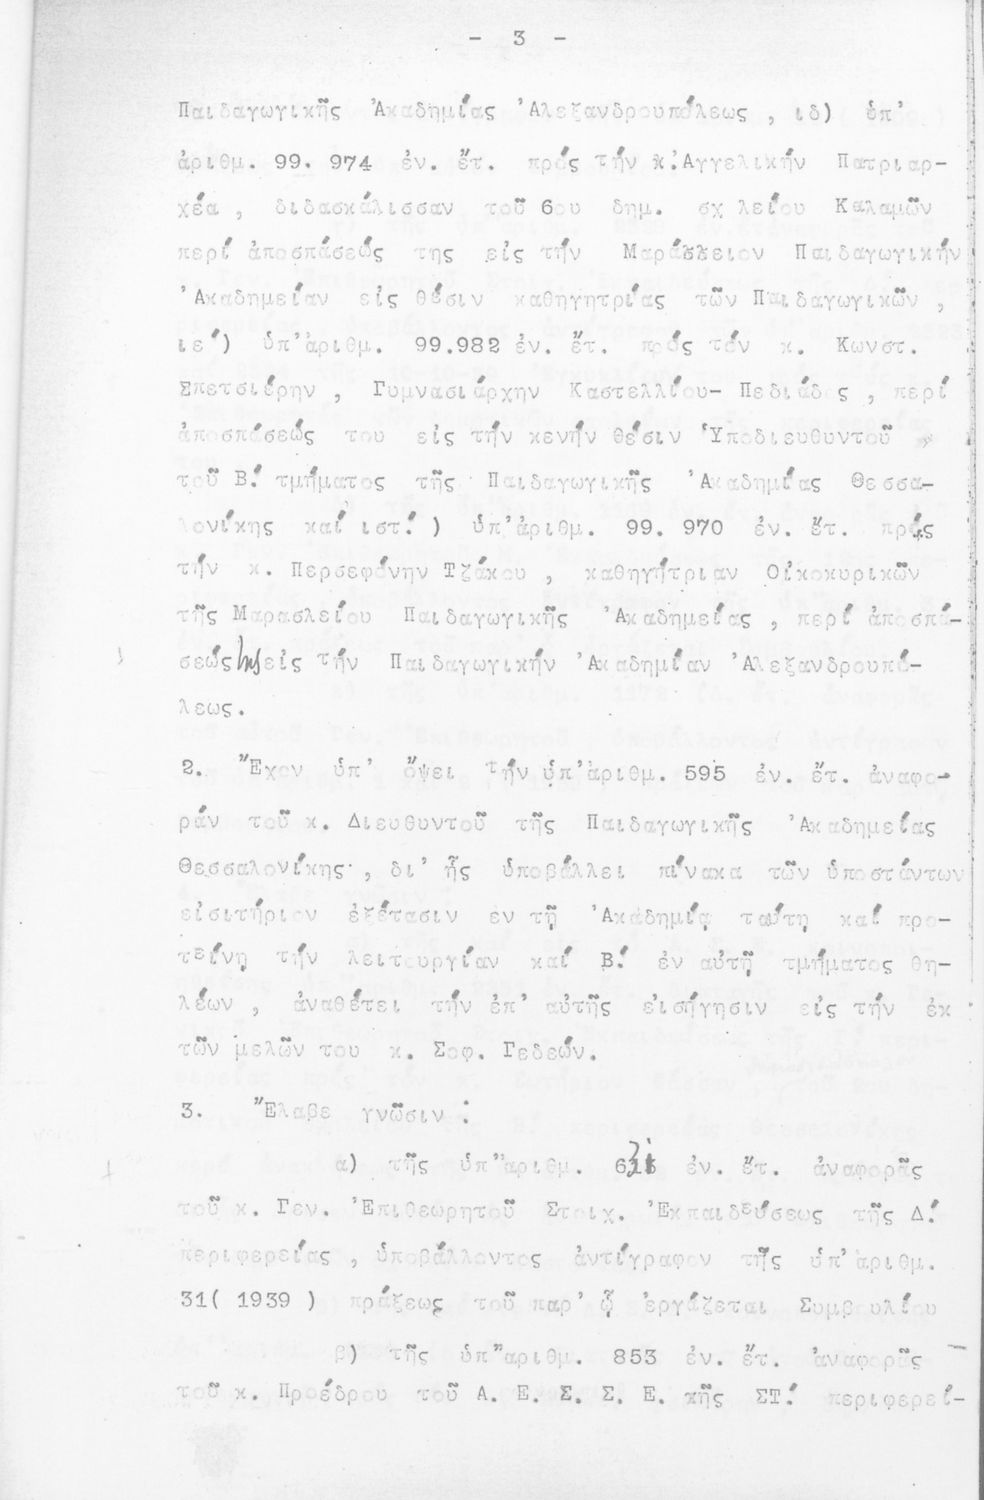 - 3 -
Παιδαγωγικῆς Ἀκαδημίας Ἀλεξανδρουπόλεως , ιδ) ὑπ'
ἀριθμ. 99. 974 ἐν. ἔτ. πρός τήν κ. Ἀγγελικήν Πατριαρ-
χέα , διδασκάλισσαν τοῦ 6ου δημ. σχ λείου Καλαμῶν
περί ἀποσπάσεώς της εἰς τήν Μαράσλειον Παιδαγωγικήν
Ἀκαδημείαν εἰς θέσιν καθηγητρίας τῶν Παιδαγωγικῶν ,
ιε΄) ὑπ'ἀριθμ. 99.982 ἐν. ἔτ. πρός τόν κ. Κωνστ.
Σπετσιέρην , Γυμνασιάρχην Καστελλίου- Πεδιάδος , περί
ἀποσπάσεώς του εἰς τήν κενήν θέσιν Ὑποδιευθυντοῦ
τοῦ Β΄. τμήματος τῆς Παιδαγωγικῆς Ἀκαδημίας Θεσσα-
λονίκης καί ιστ΄.) ὑπ'ἀριθμ. 99. 970 ἐν. ἔτ. πρός
τήν κ. Περσεφόνην Τζάκου , καθηγήτριαν Οἰκοκυρικῶν
τῆς Μαρασλείου Παιδαγωγικῆς Ἀκαδημείας , περί ἀποσπά-
σεώς της εἰς τήν Παιδαγωγικήν Ἀκαδημίαν Ἀλεξανδρουπό-
λεως.
2. Ἔχον ὑπ' ὄψει τήν ὑπ'ἀριθμ. 595 ἐν. ἔτ. ἀναφο-
ράν τοῦ κ. Διευθυντοῦ τῆς Παιδαγωγικῆς Ἀκαδημείας
Θεσσαλονίκης , δι' ἧς ὑποβάλλει πίνακα τῶν ὑποστάντων
εἰσιτήριον ἐξέτασιν εν τῇ Ἀκαδημίᾳ ταύτῃ καί προ-
τείνῃ τήν λειτουργίαν καί Β΄. ἐν αὐτῇ τμήματος θη-
λέων , ἀναθέτει τήν ἐπ' αὐτῆς εἰσήγησιν εἰς τήν ἐκ
τῶν μελῶν του κ. Σοφ. Γεδεών.
3. Ἔλαβε γνῶσιν :
α) τῆς ὑπ'ἀριθμ. ἐν. ἔτ. ἀναφορᾶς
τοῦ κ. Γεν. Ἐπιθεωρητοῦ Στοιχ. Ἐκπαιδεύσεως τῆς Δ΄.
περιφερείας , ὑποβάλλοντος ἀντίγραφον τῆς ὑπ'ἀριθμ.
31( 1939 ) πράξεως τοῦ παρ' ᾧ ἐργάζεται Συμβουλίου
β) τῆς ὑπ'ἀριθμ. 853 ἐν. ἔτ. ἀναφορᾶς
τοῦ κ. Προέδρου τοῦ Α. Ε. Σ. Σ. Ε. κῆς ΣΤ΄. περιφερεί-